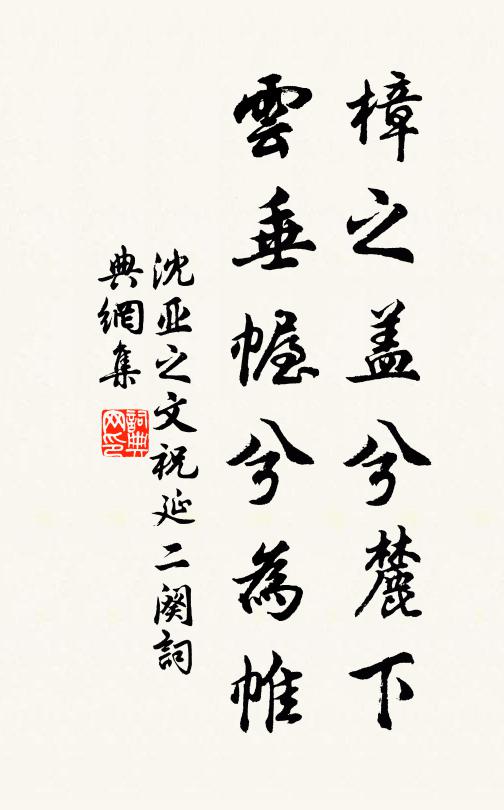 樟之盖兮麓下
雲垂幄兮為帷
沈亚之文祝延二阕詞
典網集
詞典网印